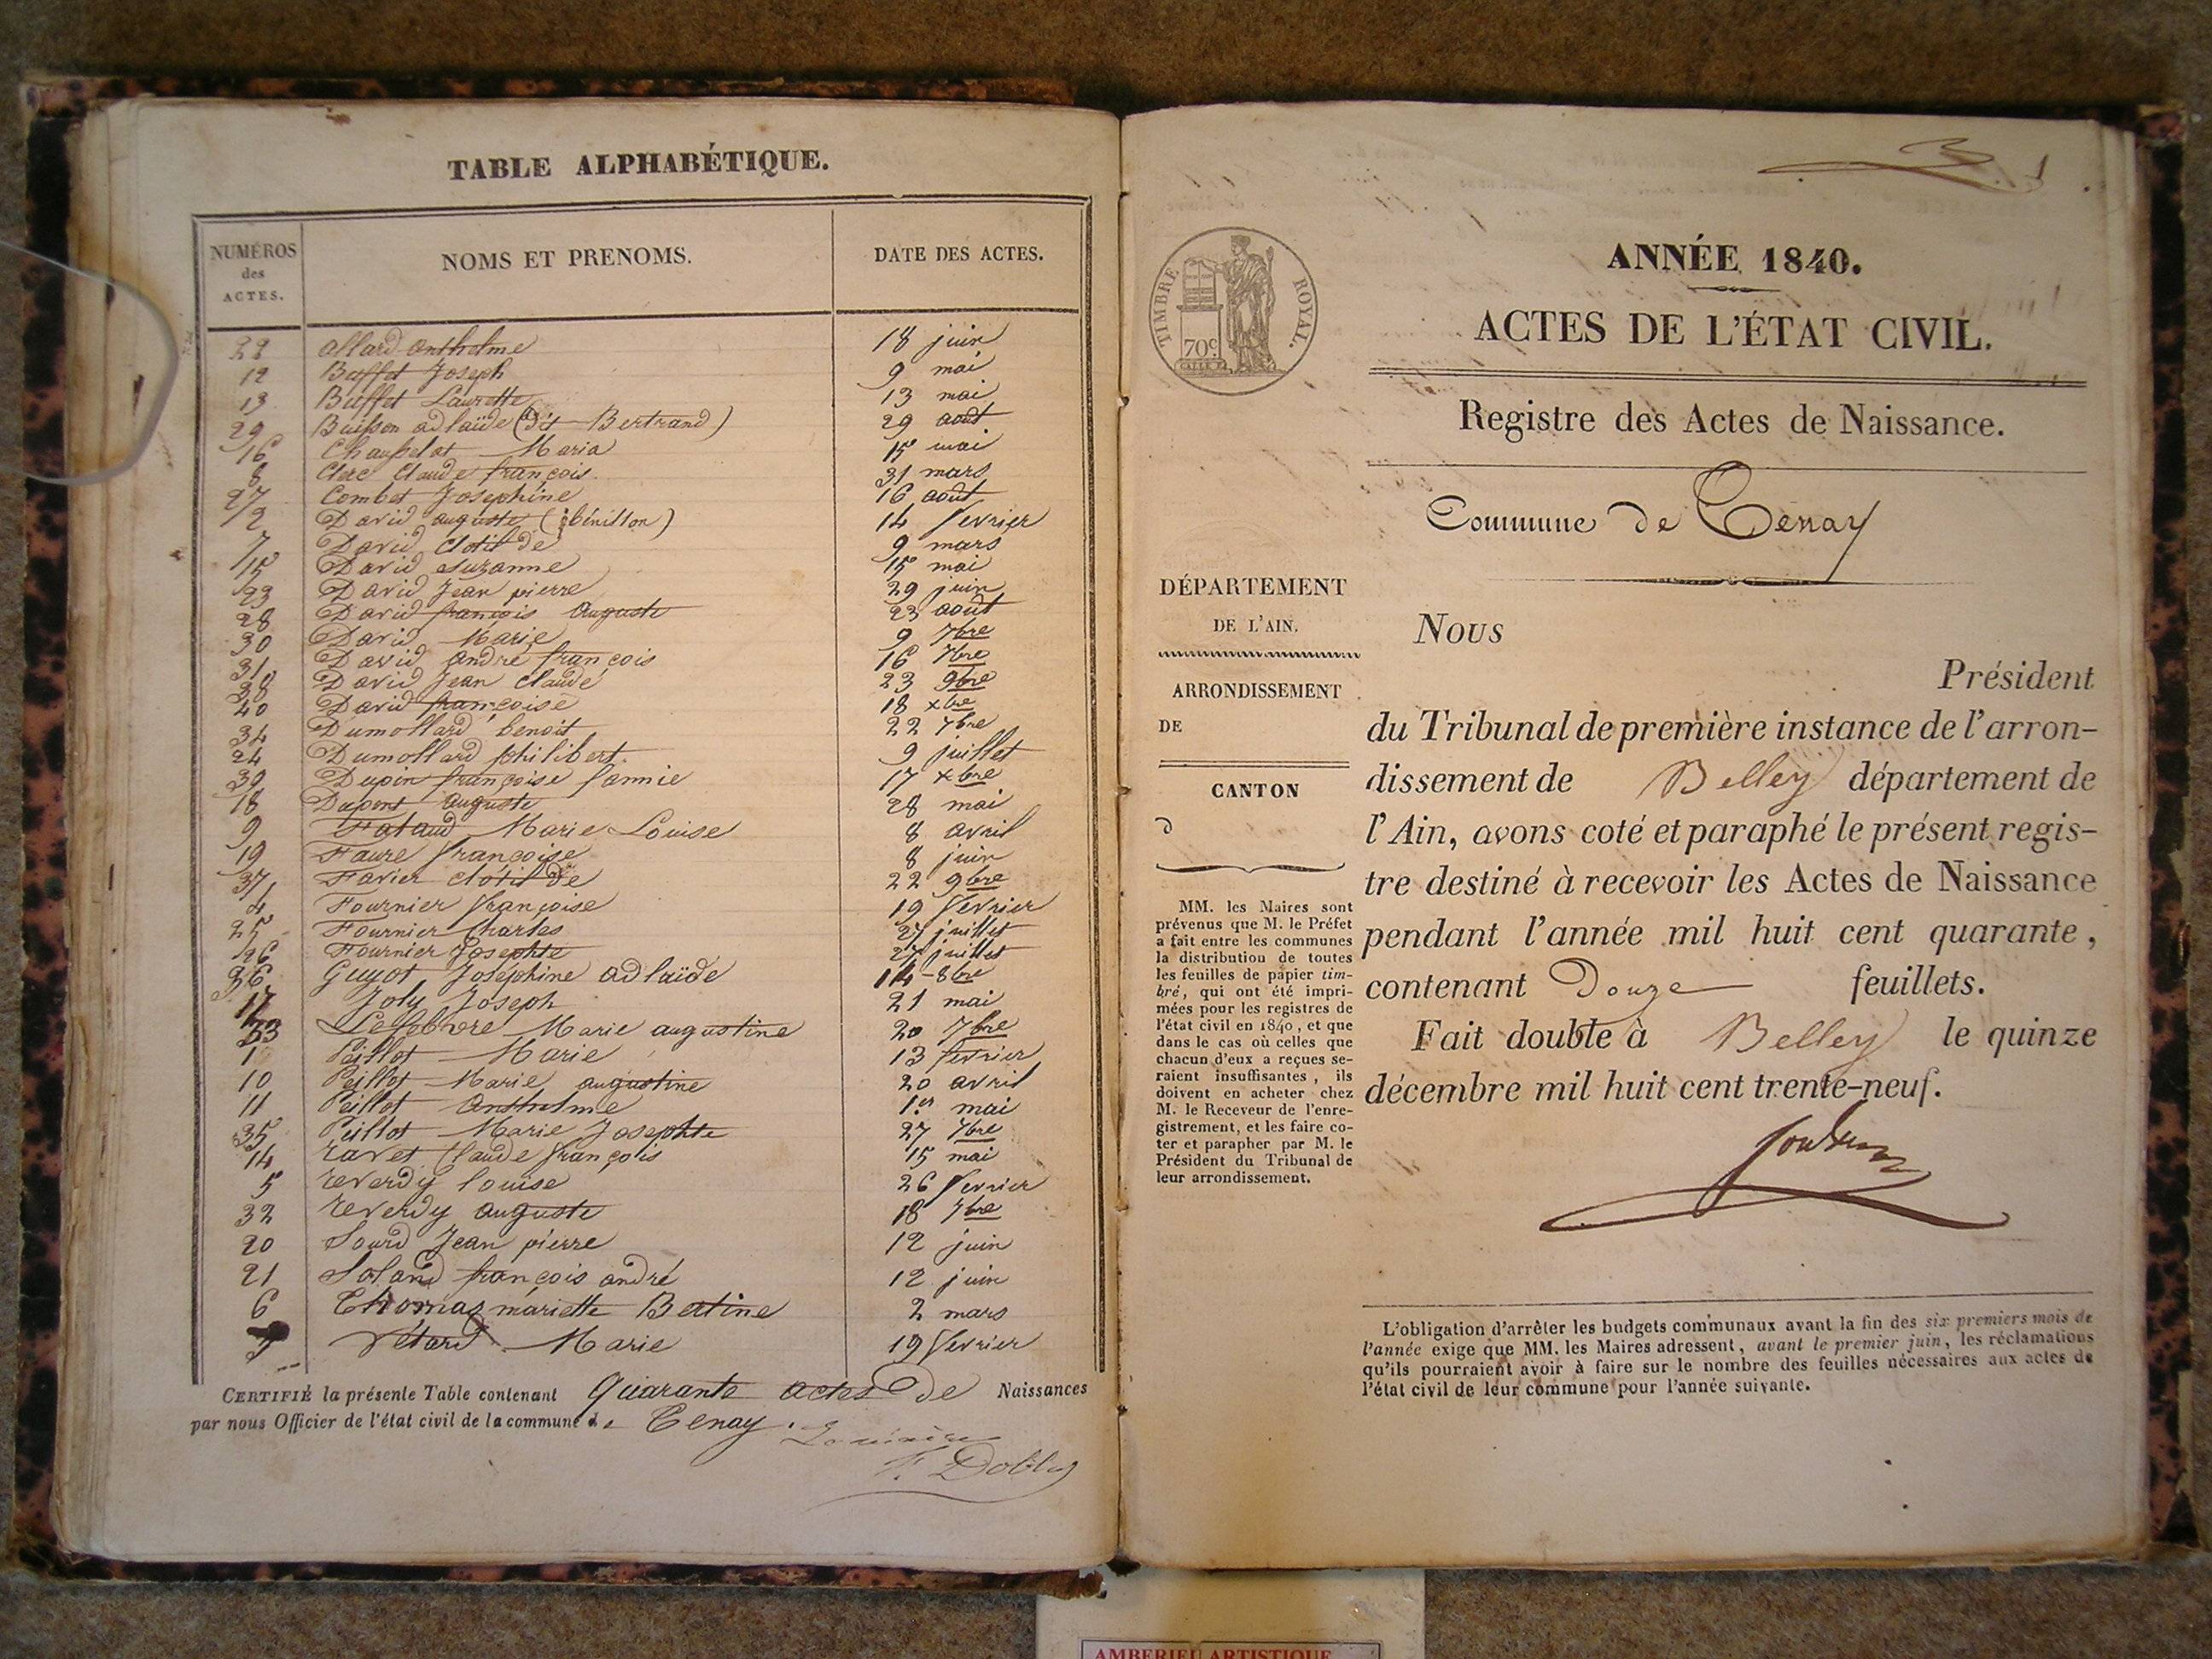 TABLE ALPHABÉTIQUE.
NUMÉROS des ACTES. NOMS ET PRENOMS. DATE DES ACTES.
22 allard anthelme 18 juin
12 Buffet Joseph 9 mai
13 Buffet Laurette 13 mai
29 Buisson adlaïde (dit Bertrand) 29 août
16 Chausselat Maria 15 mai
8 Clerc Claude françois 31 mars
27 Combet Josephine 16 août
2 David auguste 14 fevrier
7 David Clotilde 9 mars
15 David Suzanne 15 mai
23 David Jean pierre 29 juin
28 David françois Auguste 23 août
30 David Marie 9 7bre
31 David andré françois 16 7bre
38 David Jean Claude 23 9bre
40 David françoise 18 xbre
34 Dumollard benoit 22 7bre
24 Dumollard philibert 9 juillet
39 Dupin françoise fannie 17 xbre
18 Dupont auguste 28 mai
9 Marie Louise 8 avril
19 Faure françoise 8 juin
37 Favier Clotilde 22 9bre
4 Fournier françoise 19 fevrier
25 Fournier Charles 27 juillet
26 Fournier Josephte 27 juillet
36 Guyot Joséphine adlaïde 14 8bre
17 Joly Joseph 21 mai
33 Lefebvre Marie augustine 20 7bre
1 Peillot Marie 13 fevrier
10 Peillot Marie augustine 20 avril
11 Peillot Anthelme 1.er mai
35 Peillot Marie Josephte 27 7bre
14 ravet Claude françois 15 mai
5 reverdy louise 26 fevrier
32 reverdy auguste 18 7bre
20 Sourd Jean pierre 12 juin
21 Soland françois andré 12 juin
6 Thomas mariette Bertine 2 mars
3 Vétard Marie 19 fevrier
CERTIFIÉ la présente Table contenant Quarante actes de Naissances
par nous Officier de l'état civil de la commune de Tenay.
Le maire
ANNÉE 1840.
ACTES DE L'ÉTAT CIVIL.
TIMBRE ROYAL.
70c
Registre des Actes de Naissance.
Commune de Tenay
DÉPARTEMENT
DE L'AIN.
ARRONDISSEMENT
DE
CANTON
d
MM. les Maires sont
prévenus que M. le Préfet
a fait entre les communes
la distribution de toutes
les feuilles de papier tim-
bré, qui ont été impri-
mées pour les registres de
l'état civil en 1840, et que
dans le cas où celles que
chacun d'eux a reçues se-
raient insuffisantes, ils
doivent en acheter chez
M. le Receveur de l'enre-
gistrement, et les faire co-
ter et parapher par M. le
Président du Tribunal de
leur arrondissement.
Nous
Président
du Tribunal de première instance de l'arron-
dissement de Belley département de
l'Ain, avons coté et paraphé le présent regis-
tre destiné à recevoir les Actes de Naissance
pendant l'année mil huit cent quarante,
contenant Douze feuillets.
Fait double à Belley le quinze
décembre mil huit cent trente-neuf.
L'obligation d'arrêter les budgets communaux avant la fin des six premiers mois de
l'année exige que MM. les Maires adressent, avant le premier juin, les réclamations
qu'ils pourraient avoir à faire sur le nombre des feuilles nécessaires aux actes de
l'état civil de leur commune pour l'année suivante.
AMBERIEU ARTISTIQUE